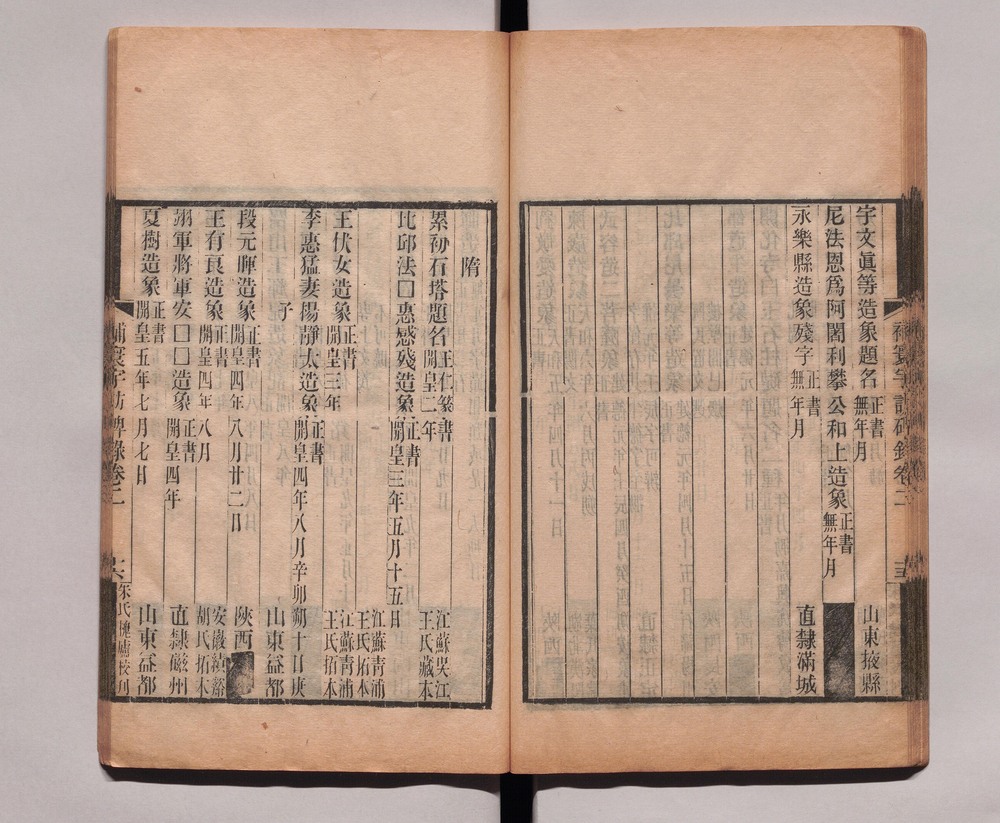 宇文眞等造象題名 正書 無年月 山東掖縣
尼法恩爲阿閣利攀公和上造象 正書 無年月
永樂縣造象殘字 正書 無年月 直隸滿城
補寰宇訪碑錄卷二
隋
累初石塔題名 王仁篆書 開皇二年 江蘇吳江王氏藏本
比邱法□惠感殘造象 正書 開皇三年五月十五日 江蘇青浦王氏拓本
王伏女造象 正書 開皇三年 江蘇青浦王氏拓本
李惠猛妻楊靜太造象 正書 開皇四年八月辛卯朔十日庚
子 山東益都
段元暉造象 正書 開皇四年八月廿二日 陝西
王有良造象 正書 開皇四年八月 安徽績谿胡氏拓本
翊軍將軍安□□造象 正書 開皇四年 直隸磁州
夏樹造象 正書 開皇五年七月七日 山東益都
補寰宇訪碑錄卷二 朱氏槐廬校刊